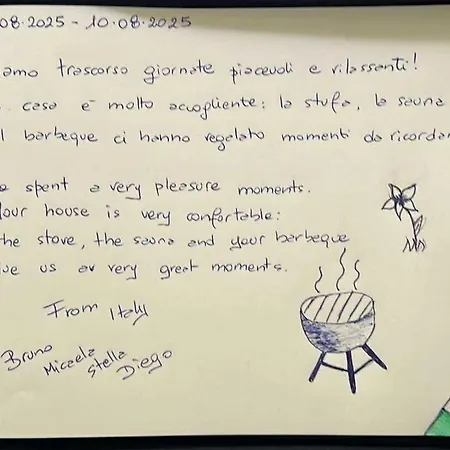 08.2025 - 10.08.2025
amo trascorso giornate piacevoli e rilassanti!
casa è molto accogliente: la stufa, la sauna
l barbeque ci hanno regalato momenti da ricordar
e spent a very pleasure moments.
Your house is very confortable:
the stove, the sauna and your barbeque
ve us av very great moments.
From Italy
Bruno
Micaela
Stella
Diego